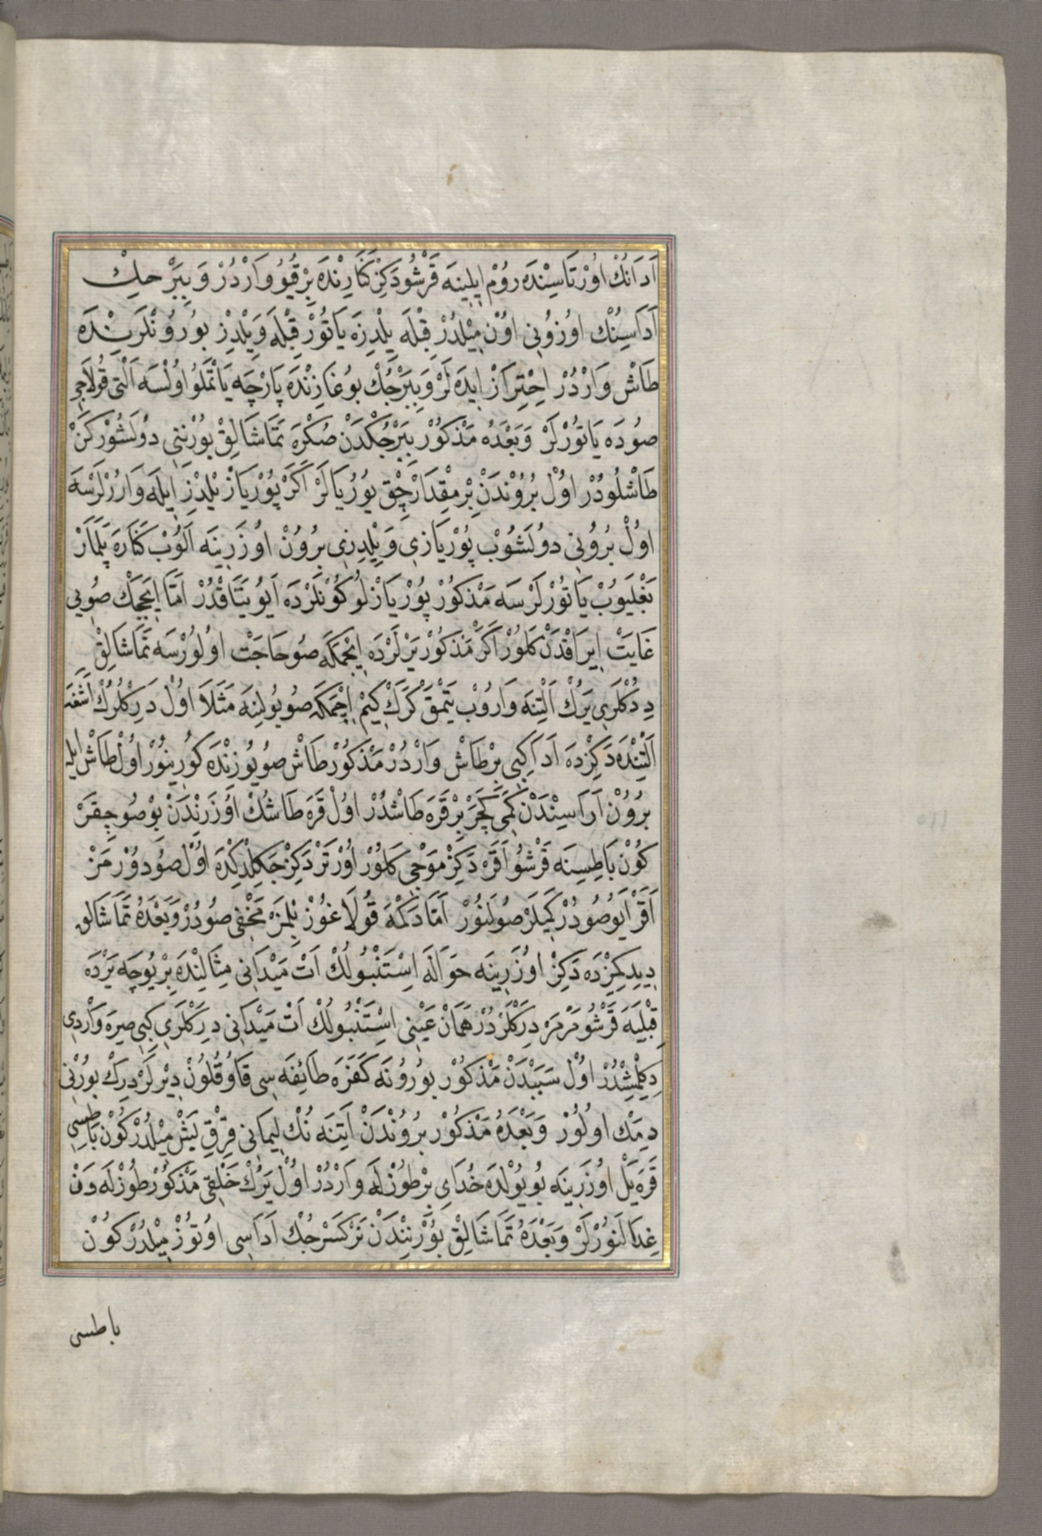 اَدَانُكْ اُورْتَاسِنْدَه رُومْ اِيلِينَه قَرْشُو دَكِزْ كَنَارِنْدَه بِرْ قُيُو وَارْدُرْ وَ بِبَرْجِكْ
اَدَاسِنُكْ اوُزُونِى اوُنْ مِيْلدُرْ قِبْلَه يِلْدِزَه يَاتُورْ قِبْلَه وَيِلْدِزْ بوُرُونْلَرِنْدَه
طَاشْ وَارْدُرْ اِحْتِرَازْ اِيدَه لَرْ وَبِبَرْجِكْ بوُغَازِنْدَه پَارْچَه يَاتْمَلُو اوُلْسَه اَلْتِى قُولَاجْ
صوُدَه يَاتُورْلَرْ وَبَعْدَهُ مَذْكُورْ بِبَرْجِكْدَنْ صُكْرَه تَمَاشَالِقْ بوُرْنِنِى دوُلَشُورْكَنْ
طَاشْلُودُرْ اوُلْ بُرُونْدَنْ بِرْمِقْدَارْ چِقْ يوُرُيَالَرْ اَكَرْ پوُرْيَازْ يِلْدِزْ اِيلَه وَارُرْلَرْسَه
اوُلْ بُرُونِى دوُلَشُوبْ پوُرْيَازِى وَيِلْدِزِى بُرُونْ اوُزَرِينَه اَلوُبْ كَنَارَه پَلَمَارْ
بَغْلَيوُبْ يَاتُورْلَرْسَه مَذْكُورْ پوُرْيَازْلُو كُونْلَرْدَه اَيوُ يَتَاقْدُرْ اَمَّا اِيچْمِكْ صُويِى
غَايَتْ اِيرَاقْدَنْ كَلوُرْ اَكَرْ مَذْكُورْ يَرْلَرْدَه اِيچْمَكَه صُو حَاجَتْ اوُلوُرْسَه تَمَاشَالِقْ
دِدُكْلَرِى يَرُكْ اَلْتِنَه وَارُوبْ يَتْمَقْ كَرَكْ كِيمْ اِچْمَكَه صوُ بوُلِنَه مَثَلَا اوُلْ دِرَكْلَرُكْ اَشَغَه
اَلْتِنْدَه دَكِزْدَه اَدَا كِبِى بِرْ طَاشْ وَارْدُرْ مَذْكُورْ طَاشْ صُو يوُزِنْدَه كوُرِينوُرْ اوُلْ طَاشْ اِيلَه
بُرُونْ اَرَاسِنْدَنْ كَمِى كَچَرْ بِرْ قَرَه طَاشْدُرْ اوُلْ قَرَه طَاشُكْ اوُزَرِنْدَنْ بوُ صُو چِقَرْ
كُونْ بَاطِسِنَه قَرْشُو اَقَرْ دَكِزْ مَوْجِى كَلوُرْ اوُرْتَرْ دَكِزْ چَكِلْدِكْدَه اوُلْ صُو دوُرْمَزْ
اَقَرْ اَيوُ صُودُرْ كَمِيلَرْ صُولَنوُرْ اَمَّا دَكْمَه قوُلَاغوُزْ بِلْمَزْ مَخْفِى صُودُرْ وَبَعْدَهُ تَمَاشَالِقْ
دِيدِكِمِزْدَه دَكِزْ اوُزَرِينَه حَوَالَه اِسْتَنْبُولُكْ اَتْ مَيْدَانِى مِثَالِنْدَه بِرْ يوُجَه يَرْدَه
قِبْلَيَه قَرْشُو مَرْمَرْ دِرَكْلَرْدُرْ هَمَانْ عَيْنِى اِسْتَنْبُولُكْ اَتْ مَيْدَانِى دِرَكْلَرِى كِبِى صِرَه وَارْدِى
دِكِلْمِشْدُرْ اوُلْ سَبَبْدَنْ مَذْكُورْ بوُرُونَه كَفَرَه طَائِفَه سِى قَاوُ قُلُونْ دِيْرلَرْ دِرَكْ بوُرْنِى
دِمَكْ اوُلوُرْ وَبَعْدَهُ مَذْكُورْ بُرُونْدَنْ اَتِنَه نُكْ لِيمَانِى قِرْقْ بَشْ مِيْلدُرْ كُونْ بَاطِسِى
قَرَه يَلْ اوُزَرِينَه بوُ يوُلْدَه خُدَايِى بِرْ طُوزْلَه وَارْدُرْ اوُلْ يَرُكْ خَلْقِى مَذْكُورْ طُوزْلَه دَنْ
غِدَالَنوُرْلَرْ وَبَعْدَهُ تَمَاشَالِقْ بوُرْنِنْدَنْ تَرْكَسَرْجُكْ اَدَاسِى اوُتُوزْ مِيْلدُرْ كُونْ
باطسى